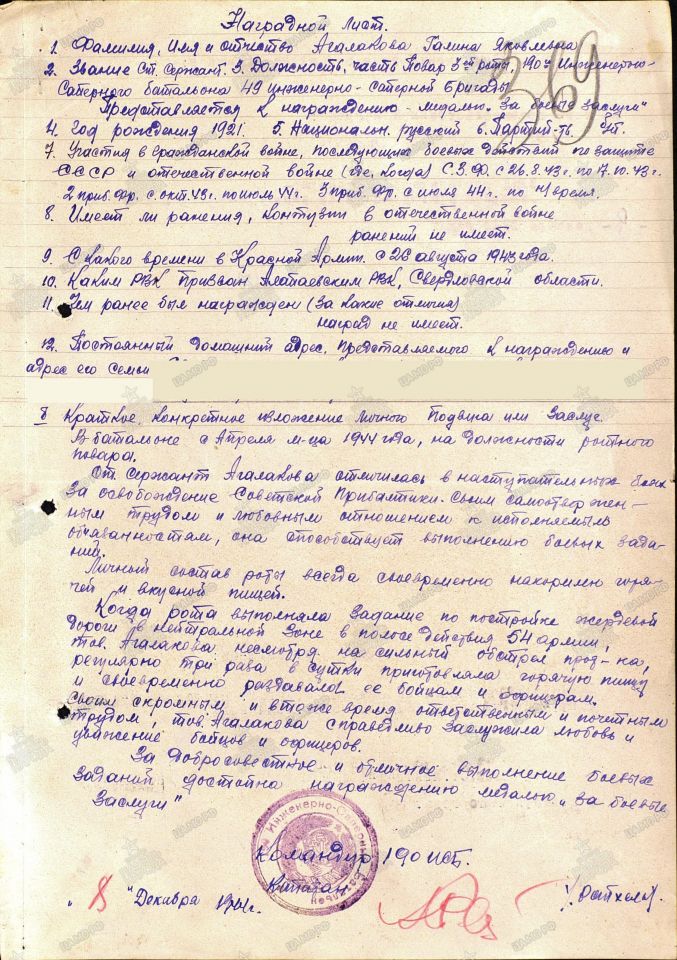 Наградной Лист.
1. Фамилия, Имя и отчество Агалакова Галина Яковлевна
2. Звание Ст. Сержант. 3. Должность, часть Повар 3ей роты, 190го Инженерно-
Саперного батальона 49 инженерно-саперной бригады
Представляется к награждению - медалью "За боевые заслуги"
4. Год рождения 1921. 5. Национальн. русский 6. Партий-ть б/п.
7. Участия в гражданской войне, последующих боевых действий по защите
СССР и отечественной войне (где, когда) С.З.Ф. с 26.8.43г. по 17.10.43г.
2 приб. фр. с окт. 43г. по июль 44г. 3 приб. фр. с июля 44г. по н/время.
8. Имеет ли ранения, контузии в отечественной войне
ранений не имеет.
9. С какого времени в Красной Армии. с 26 августа 1943 года.
10. Каким РВК Призван РВК, Свердловской области.
11. Чем ранее был награжден (За какие отличия)
наград не имеет.
12. Постоянный домашний адрес, представляемого к награждению и
адрес его семьи
Краткое, конкретное изложение личного Подвига или Заслуг.
В батальоне с Апреля м-ца 1944 года, на должности ротного
повара.
Ст. Сержант Агалакова отличилась в наступательных боях
За освобождение Советской Прибалтики. Своим самоотвержен-
ным трудом и любовным отношением к исполняемым
обязанностям, она способствует выполнению боевых зада-
ний.
Личный состав роты всегда своевременно накормлен горя-
чей и вкусной пищей.
Когда рота выполняла задание по постройке жердевой
дороги в нейтральной зоне в полосе действия 54 армии,
тов. Агалакова несмотря на сильный обстрел прот-ка,
регулярно три раза в сутки приготовляла горячую пищу
и своевременно раздавала ее бойцам и офицерам.
Своим скромным и в тоже время ответственным и почетным
трудом, тов. Агалакова справедливо заслужила любовь и
уважение бойцов и офицеров.
За добросовестное и отличное выполнение боевых
заданий достойна награждению медалью "За боевые
Заслуги"
Командир 190 ИСБ.
Капитан
"8" Декабря 1944г.